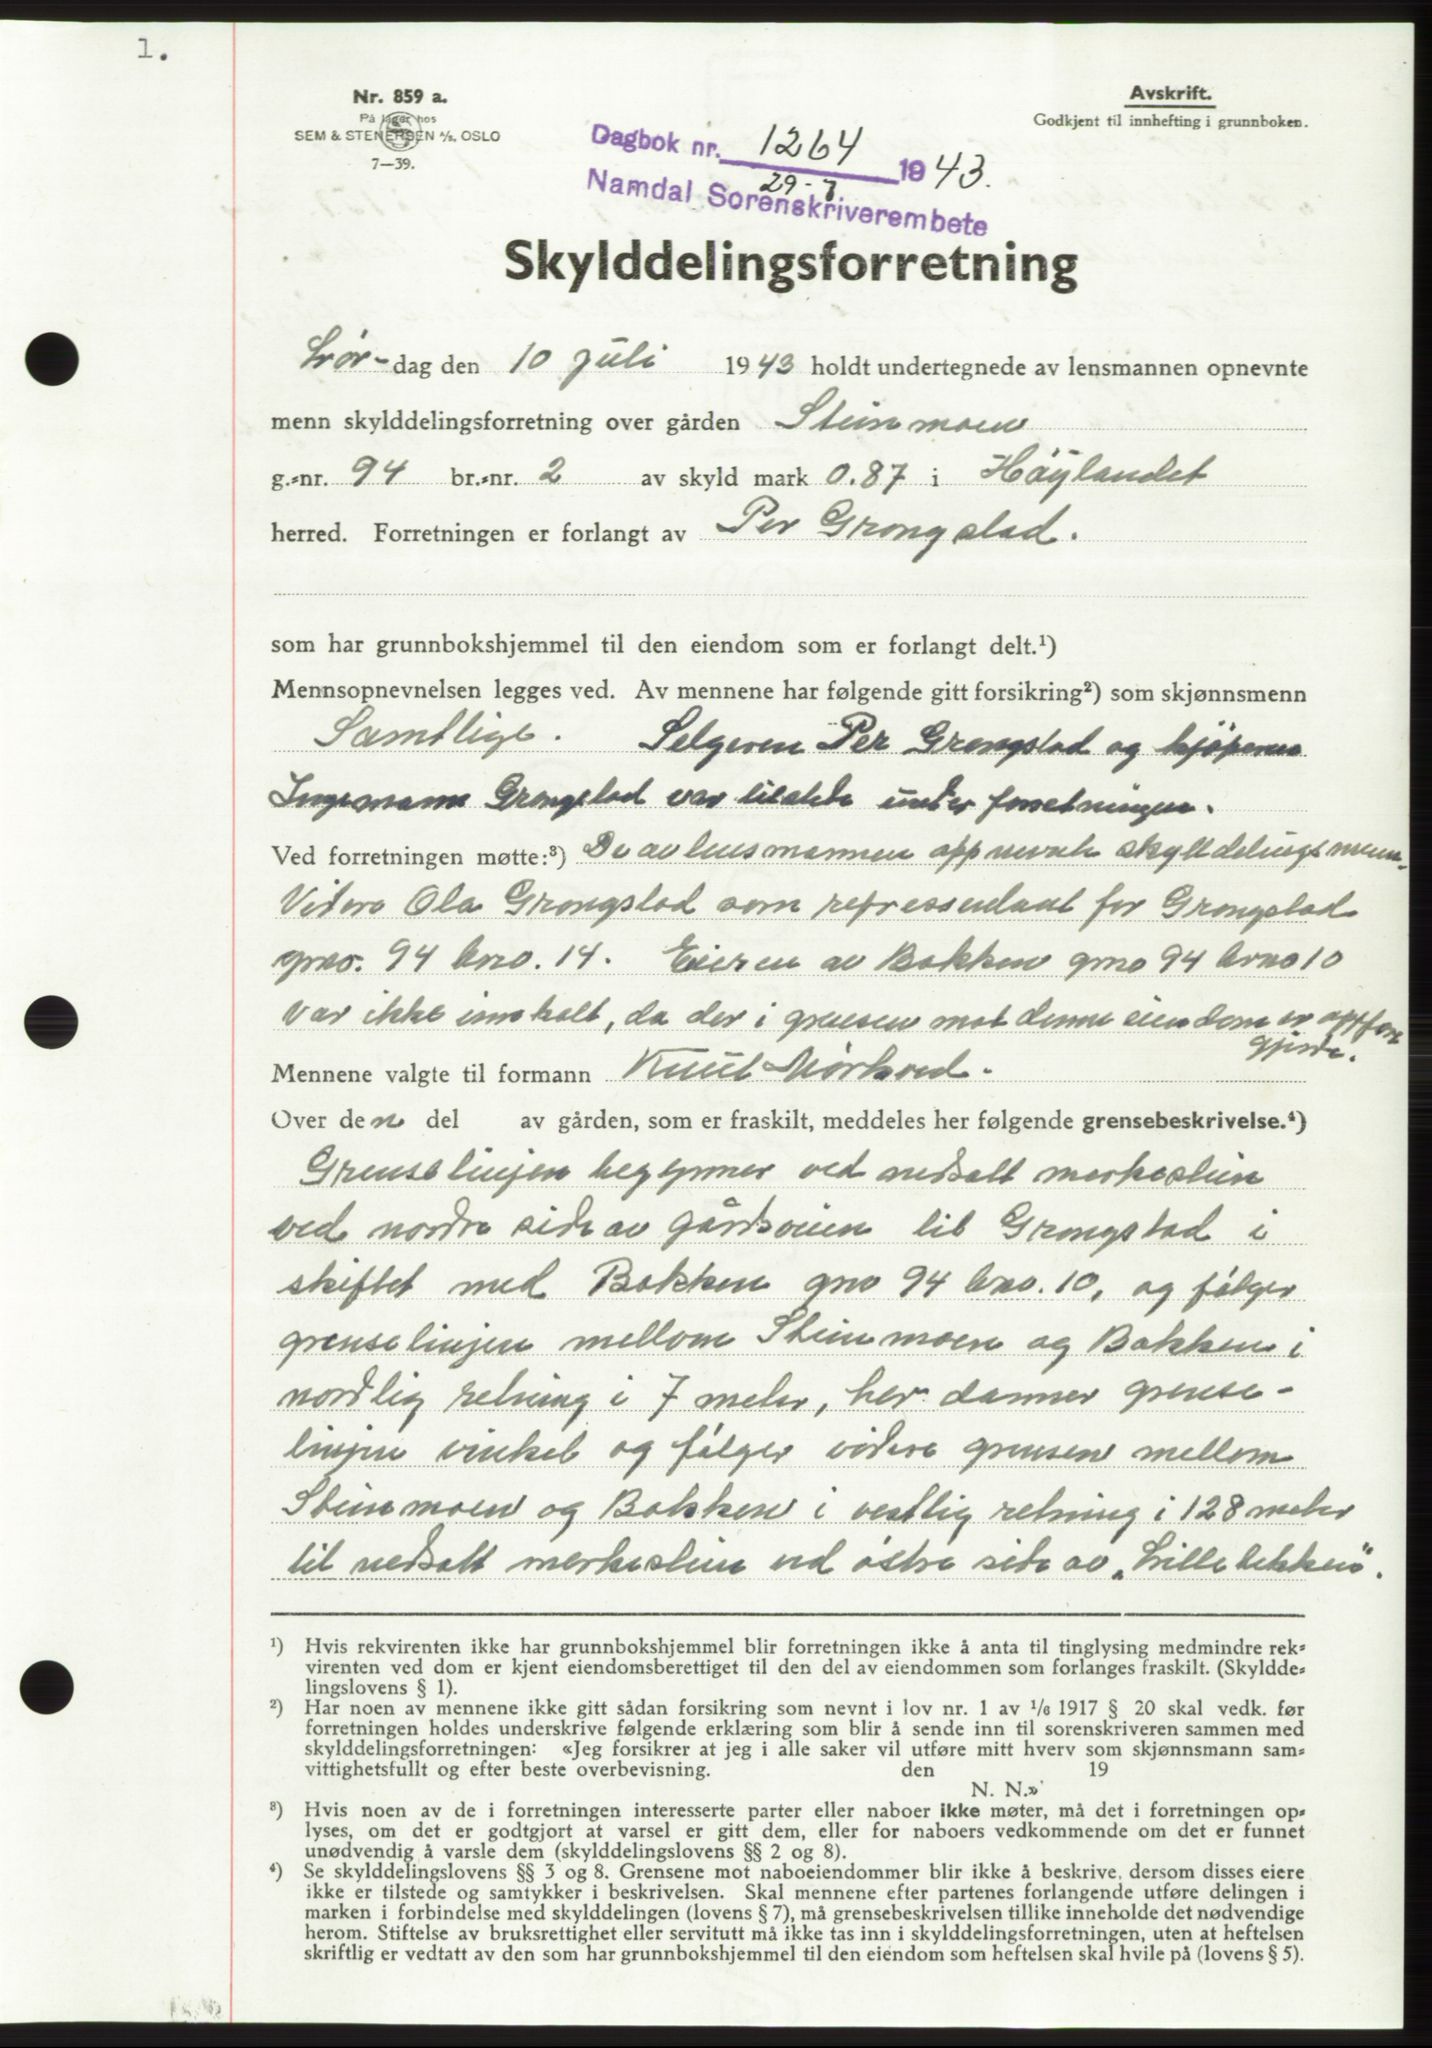 1.
Nr. 859 a.
På lager hos
SEM & STENERSEN A/S, OSLO
7—39.
Avskrift.
Godkjent til innhefting i grunnboken.
Dagbok nr. 1264 1943.
29-7
Namdal Sorenskriverembete
Skylddelingsforretning
Lør-dag den 10 juli 1943 holdt undertegnede av lensmannen opnevnte
menn skylddelingsforretning over gården Steinmoen
g.=nr. 94 br.=nr. 2 av skyld mark 0.87 i Höylandet
herred. Forretningen er forlangt av Per Grongstad.
som har grunnbokshjemmel til den eiendom som er forlangt delt.¹)
Mennsopnevnelsen legges ved. Av mennene har følgende gitt forsikring²) som skjønnsmenn
Samtlige. Selgeren Per Grongstad og kjöperen
Ingemann Grongstad var tilstede under forretningen.
Ved forretningen møtte:³) De av lensmannen oppnevnte skylddelingsmenn.
Videre Ola Grongstad som repressendant for Grongstad
gno. 94 bno. 14. Eieren av Bakken gno 94 brno 10
var ikke innkalt, da der i grensen mot denne eiendom er oppført
gjerde.
Mennene valgte til formann Knut Mörkved.
Over den del av gården, som er fraskilt, meddeles her følgende grensebeskrivelse.⁴)
Grenselinjen begynner ved nedsatt merkestein
ved nordre side av gårdsveien til Grongstad i
skiftet med Bakken gno 94 bno. 10, og fölger
grenselinjen mellom Steinmoen og Bakken i
nordlig retning i 7 meter, her danner grense-
linjen vinkel og fölger videre grensen mellom
Steinmoen og Bakken i vestlig retning i 128 meter
til nedsatt merkestein ved östre side av „Lillebekken".
¹) Hvis rekvirenten ikke har grunnbokshjemmel blir forretningen ikke å anta til tinglysing medmindre rek=
virenten ved dom er kjent eiendomsberettiget til den del av eiendommen som forlanges fraskilt. (Skyldde=
lingslovens § 1).
²) Har noen av mennene ikke gitt sådan forsikring som nevnt i lov nr. 1 av 1/6 1917 § 20 skal vedk. før
forretningen holdes underskrive følgende erklæring som blir å sende inn til sorenskriveren sammen med
skylddelingsforretningen: «Jeg forsikrer at jeg i alle saker vil utføre mitt hverv som skjønnsmann sam=
vittighetsfullt og efter beste overbevisning. den 19
N. N.»
³) Hvis noen av de i forretningen interesserte parter eller naboer ikke møter, må det i forretningen op=
lyses, om det er godtgjort at varsel er gitt dem, eller for naboers vedkommende om det er funnet
unødvendig å varsle dem (skylddelingslovens §§ 2 og 8).
⁴) Se skylddelingslovens §§ 3 og 8. Grensene mot naboeiendommer blir ikke å beskrive, dersom disses eiere
ikke er tilstede og samtykker i beskrivelsen. Skal mennene efter partenes forlangende utføre delingen i
marken i forbindelse med skylddelingen (lovens § 7), må grensebeskrivelsen tillike inneholde det nødvendige
herom. Stiftelse av bruksrettighet eller servitutt må ikke tas inn i skylddelingsforretningen, uten at heftelsen
skriftlig er vedtatt av den som har grunnbokshjemmel til den eiendom som heftelsen skal hvile på (lovens § 5).